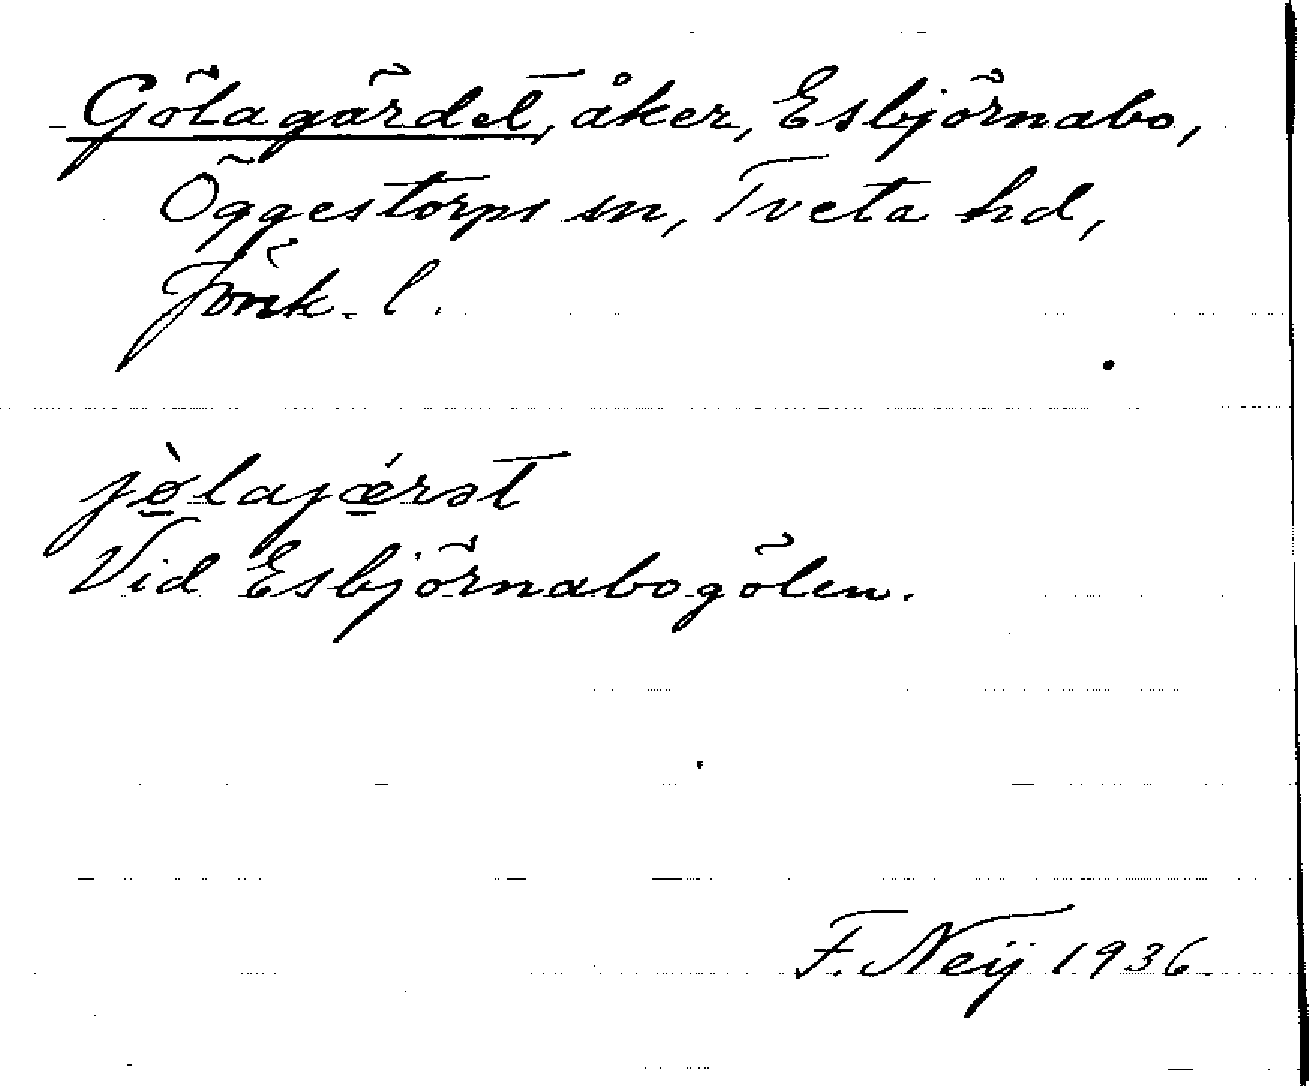 Gölagärdet, åker, Esbjörnabo,
Öggestorps sn, Tveta hd,
Jönk. l.
jø̀lajǽrət
Vid Esbjörnabogölen.
F. Neij 1936.